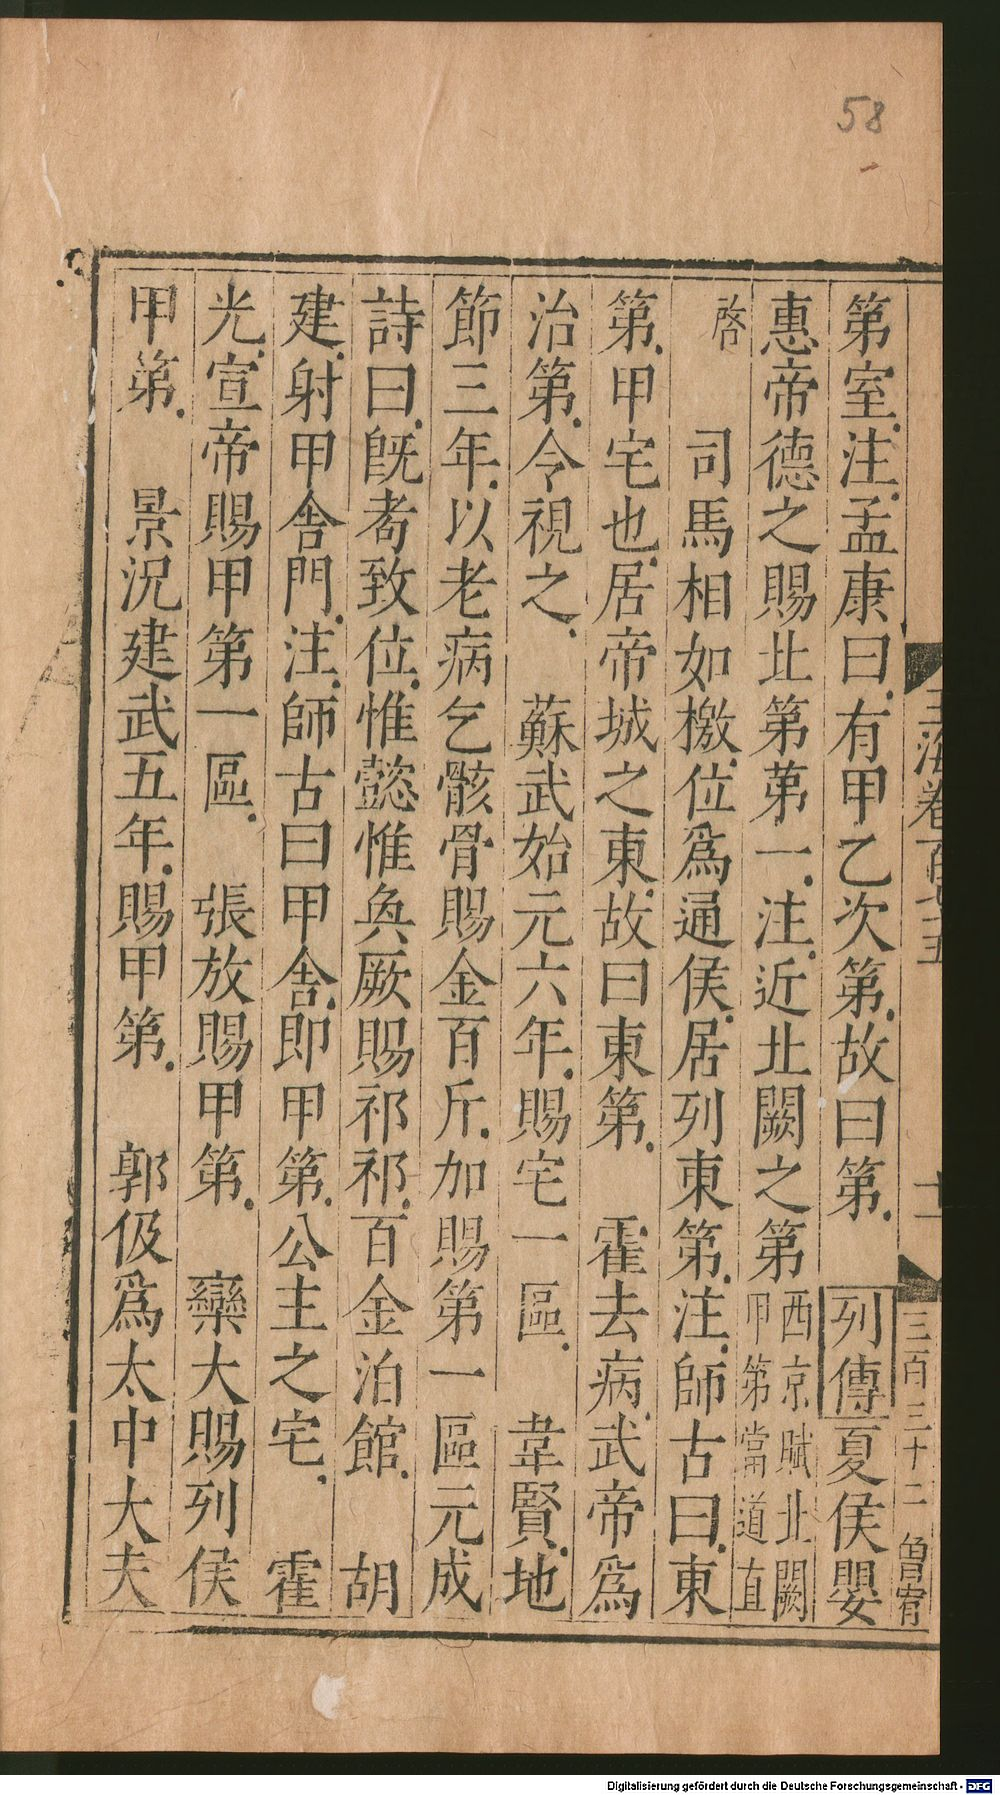 58
玉海卷百七十五
十一
三百三十二
曾宥
第室注孟康曰有甲乙次第故曰第　列傳夏侯嬰
惠帝德之賜北第苐一注近北闕之第西京賦北闕甲第當道直
啓　司馬相如檄位爲通侯居列東第注師古曰東
第甲宅也居帝城之東故曰東第　霍去病武帝爲
治第令視之　蘇武始元六年賜宅一區　韋賢地
節三年以老病乞骸骨賜金百斤加賜第一區元成
詩曰旣耇致位惟懿惟奐厥賜祁祁百金洎館　胡
建射甲舍門注師古曰甲舍即甲第公主之宅　霍
光宣帝賜甲第一區　張放賜甲第　欒大賜列侯
甲第　景況建武五年賜甲第　郭伋爲太中大夫
Digitalisierung gefördert durch die Deutsche Forschungsgemeinschaft - DFG